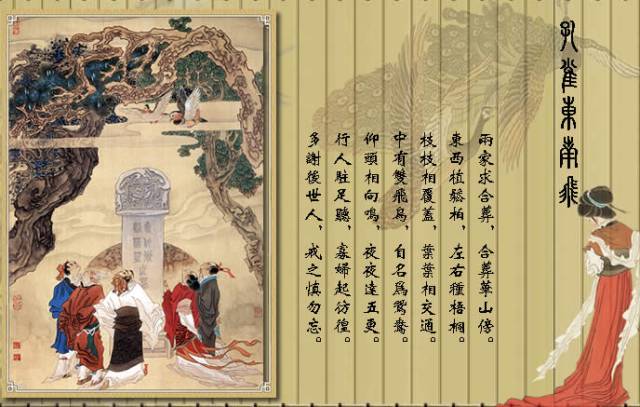 孔雀東南飛
兩家求合葬，合葬華山傍。
東西植鬆柏，左右種梧桐。
枝枝相覆蓋，葉葉相交通。
中有雙飛鳥，自名為鴛鴦。
仰頭相向鳴，夜夜達五更。
行人駐足聽，寡婦起彷徨。
多謝後世人，戒之慎勿忘。